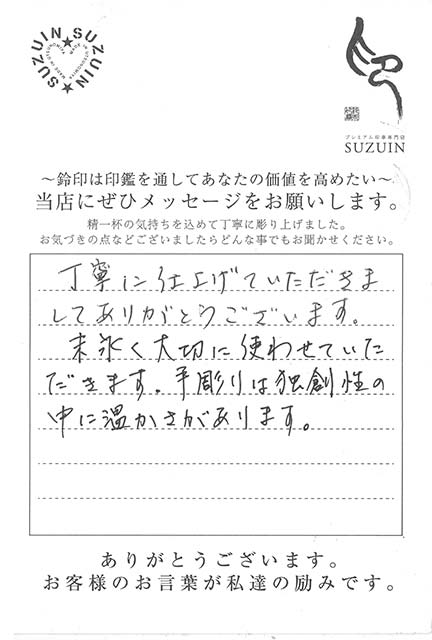 SUZUIN★SUZUIN★
印
プレミアム印章専門店
SUZUIN
～鈴印は印鑑を通してあなたの価値を高めたい～
当店にぜひメッセージをお願いします。
精一杯の気持ちを込めて丁寧に彫り上げました。
お気づきの点などございましたらどんな事でもお聞かせください。
丁寧に仕上げていただきま
してありがとうございます。
末永く大切に使わせていた
だきます。手彫りは独創性の
中に温かさがあります。
ありがとうございます。
お客様のお言葉が私達の励みです。